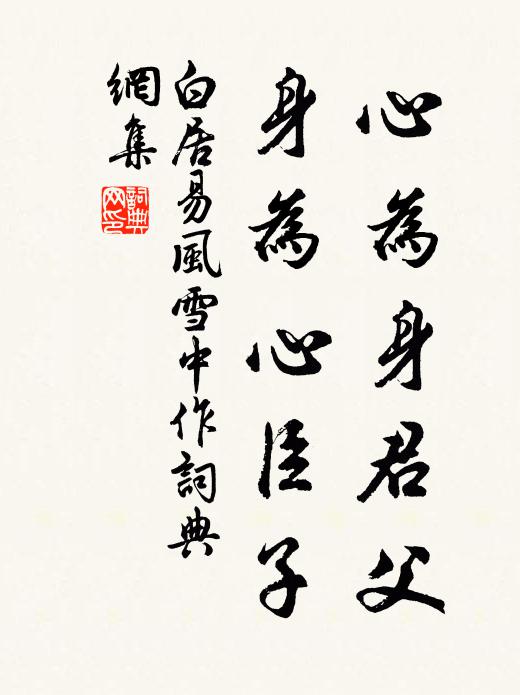 心為身君父
身為心臣子
白居易風雪中作詞典
網集
詞典網印